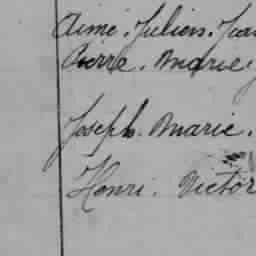 Aimé. Julien. Jea
Pierre. Marie
Joseph. Marie.
Henri. Victor